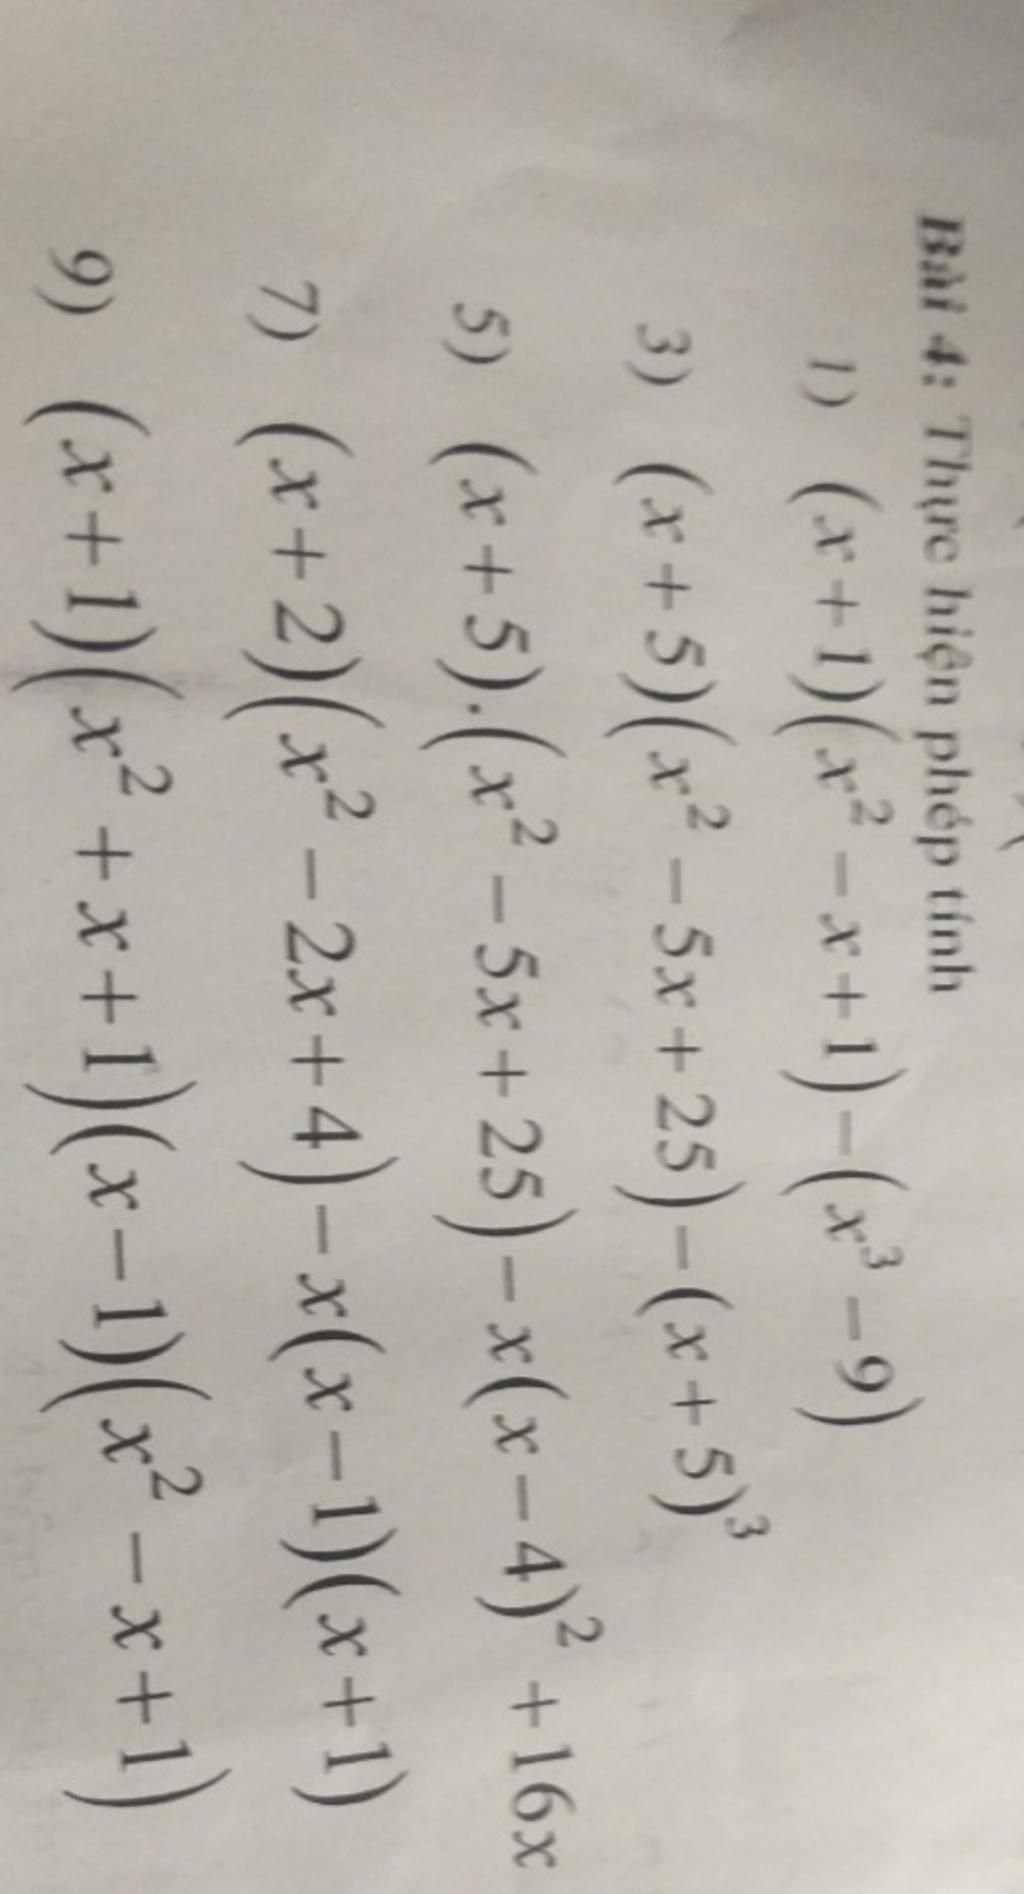 Bài 4: Thực hiện phép tính
1) (x + 1)(x² − x + 1) − (x³ − 9)
3) (x + 5)(x² − 5x + 25) − (x + 5)³
5) (x + 5).(x² − 5x + 25) − x(x − 4)² + 16x
7) (x + 2)(x² − 2x + 4) − x(x − 1)(x + 1)
9) (x + 1)(x² + x + 1)(x − 1)(x² − x + 1)